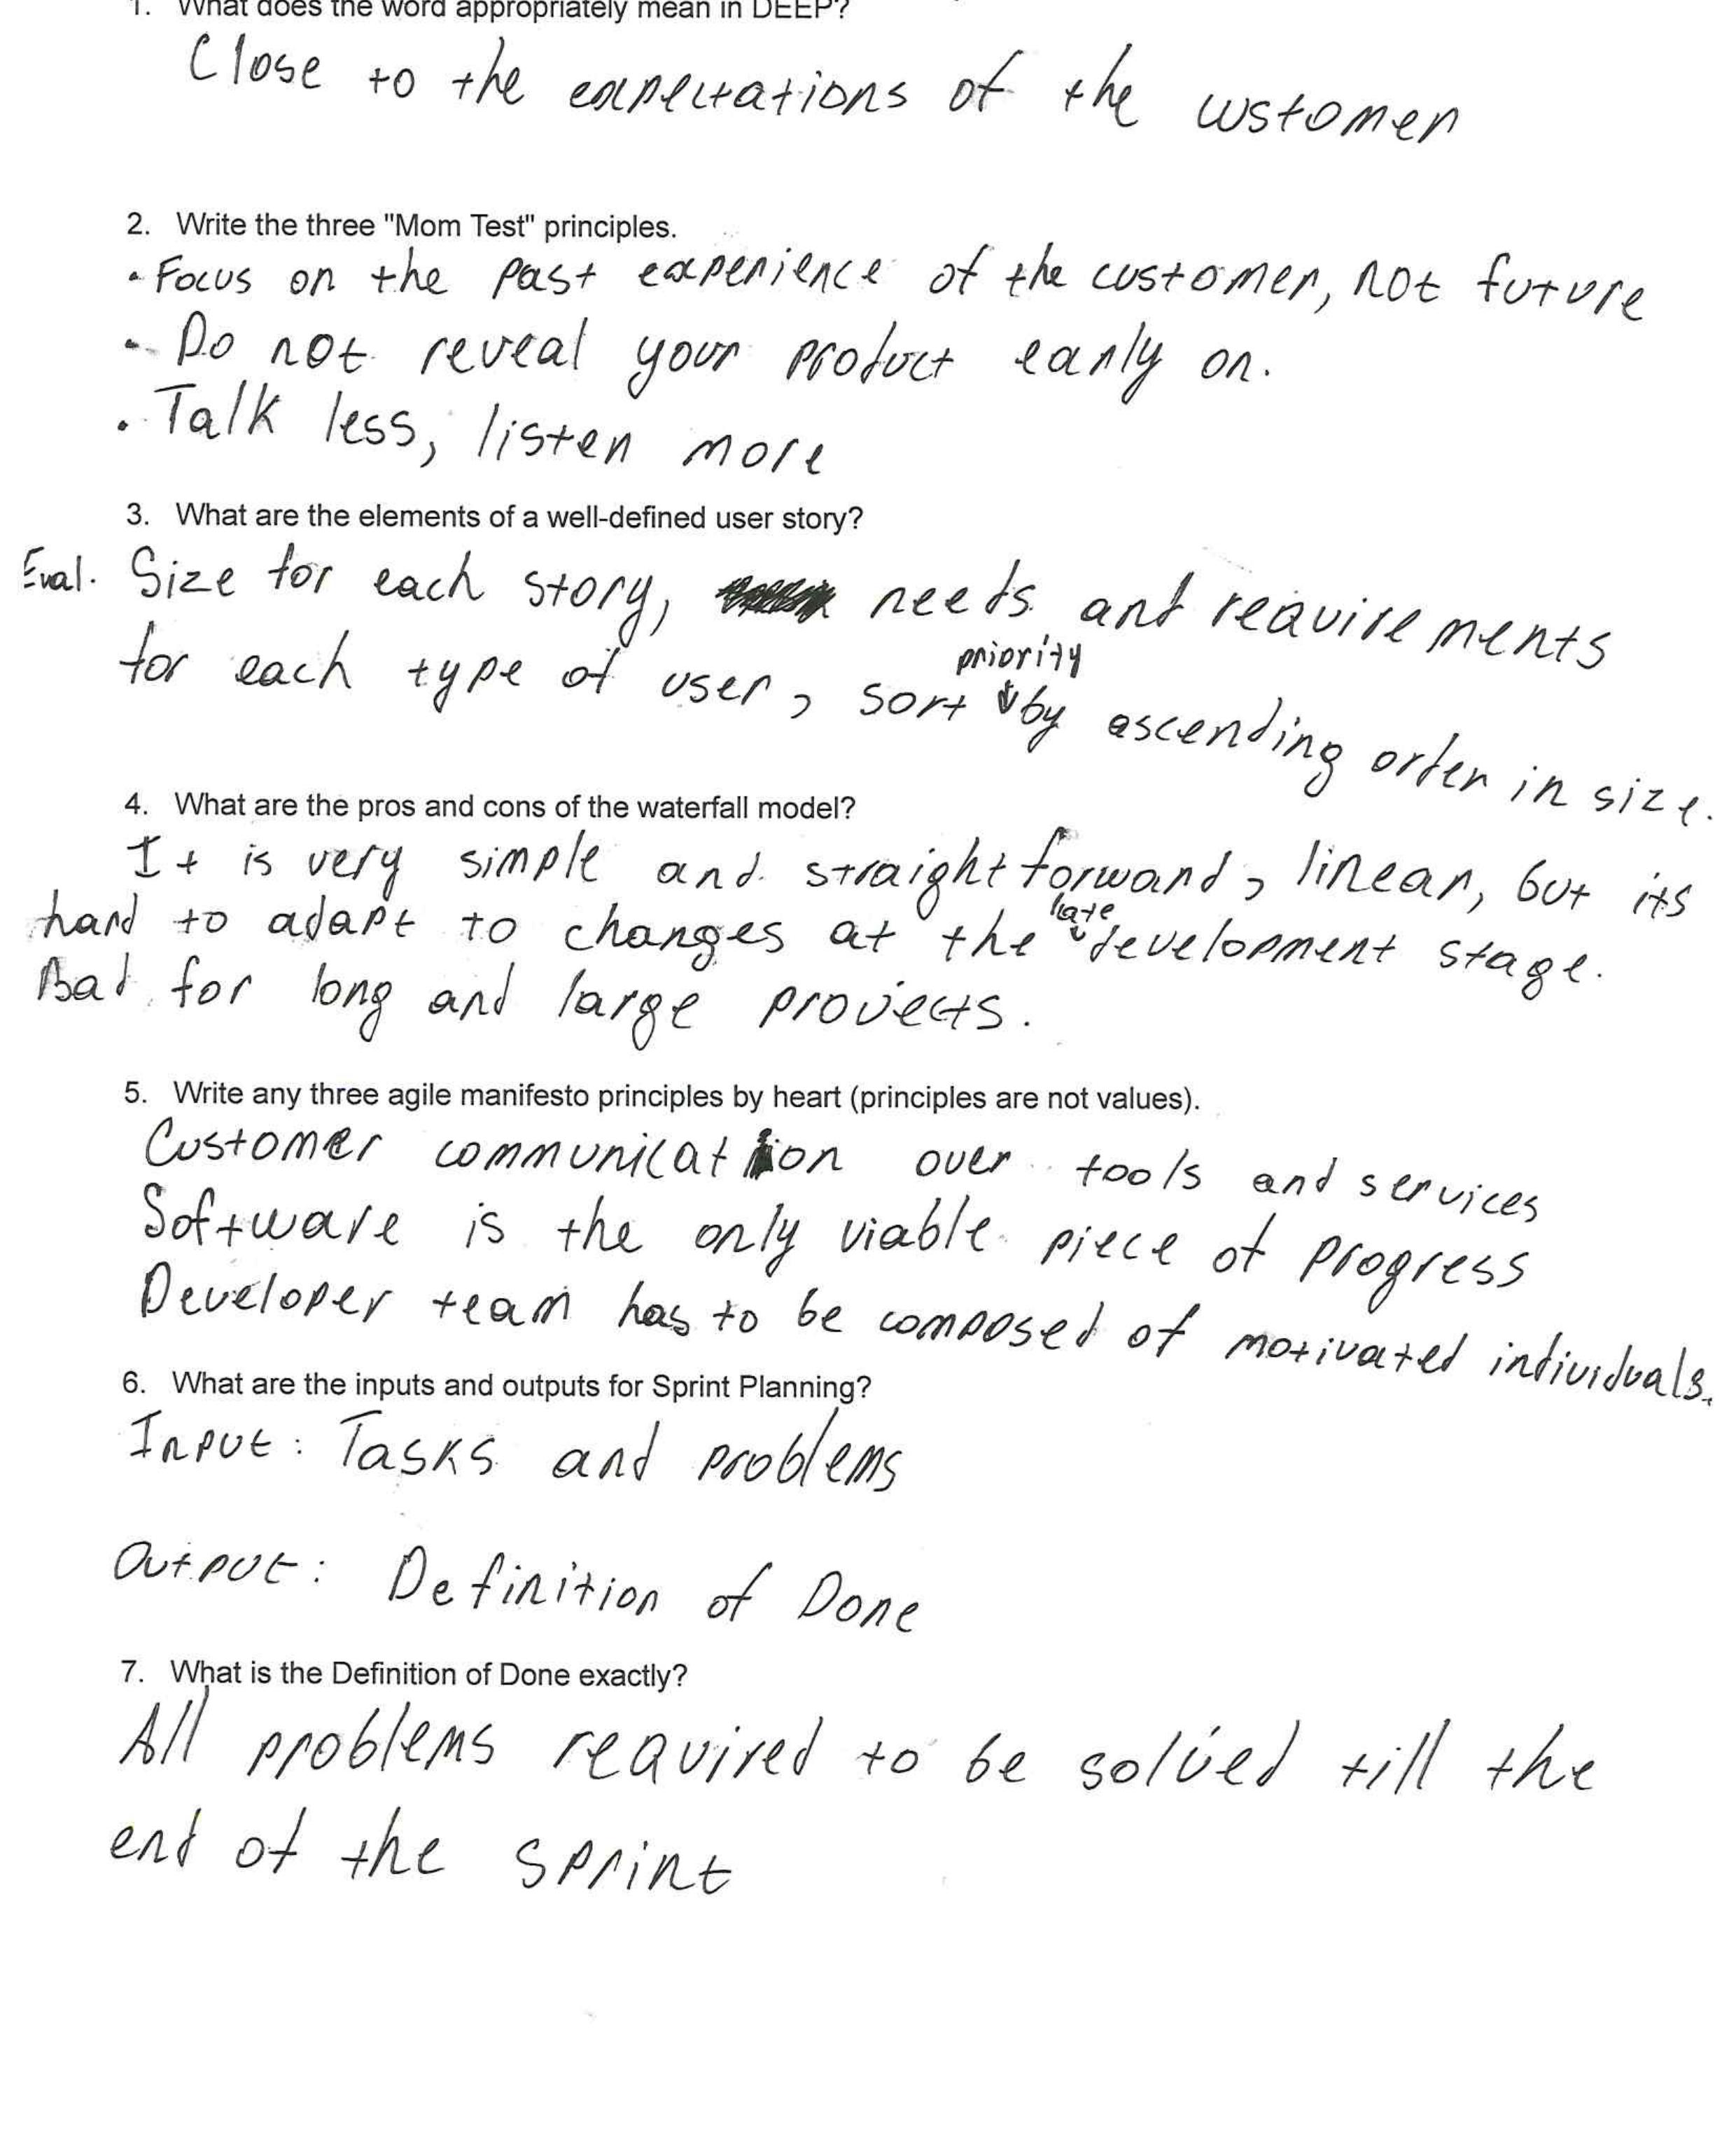 1. What does the word appropriately mean in DEEP?
Close to the expectations of the customer
2. Write the three "Mom Test" principles.
• Focus on the past experience of the customer, not future
• Do not reveal your product early on.
• Talk less, listen more
3. What are the elements of a well-defined user story?
Eval. Size for each story, needs and requirements
for each type of user, sort priority by ascending order in size.
4. What are the pros and cons of the waterfall model?
It is very simple and straightforward, linear, but its
hard to adapt to changes at the late development stage.
Bad for long and large projects.
5. Write any three agile manifesto principles by heart (principles are not values).
Customer communication over tools and services
Software is the only viable piece of progress
Developer team has to be composed of motivated individuals.
6. What are the inputs and outputs for Sprint Planning?
Input: Tasks and problems
Output: Definition of Done
7. What is the Definition of Done exactly?
All problems required to be solved till the
end of the sprint